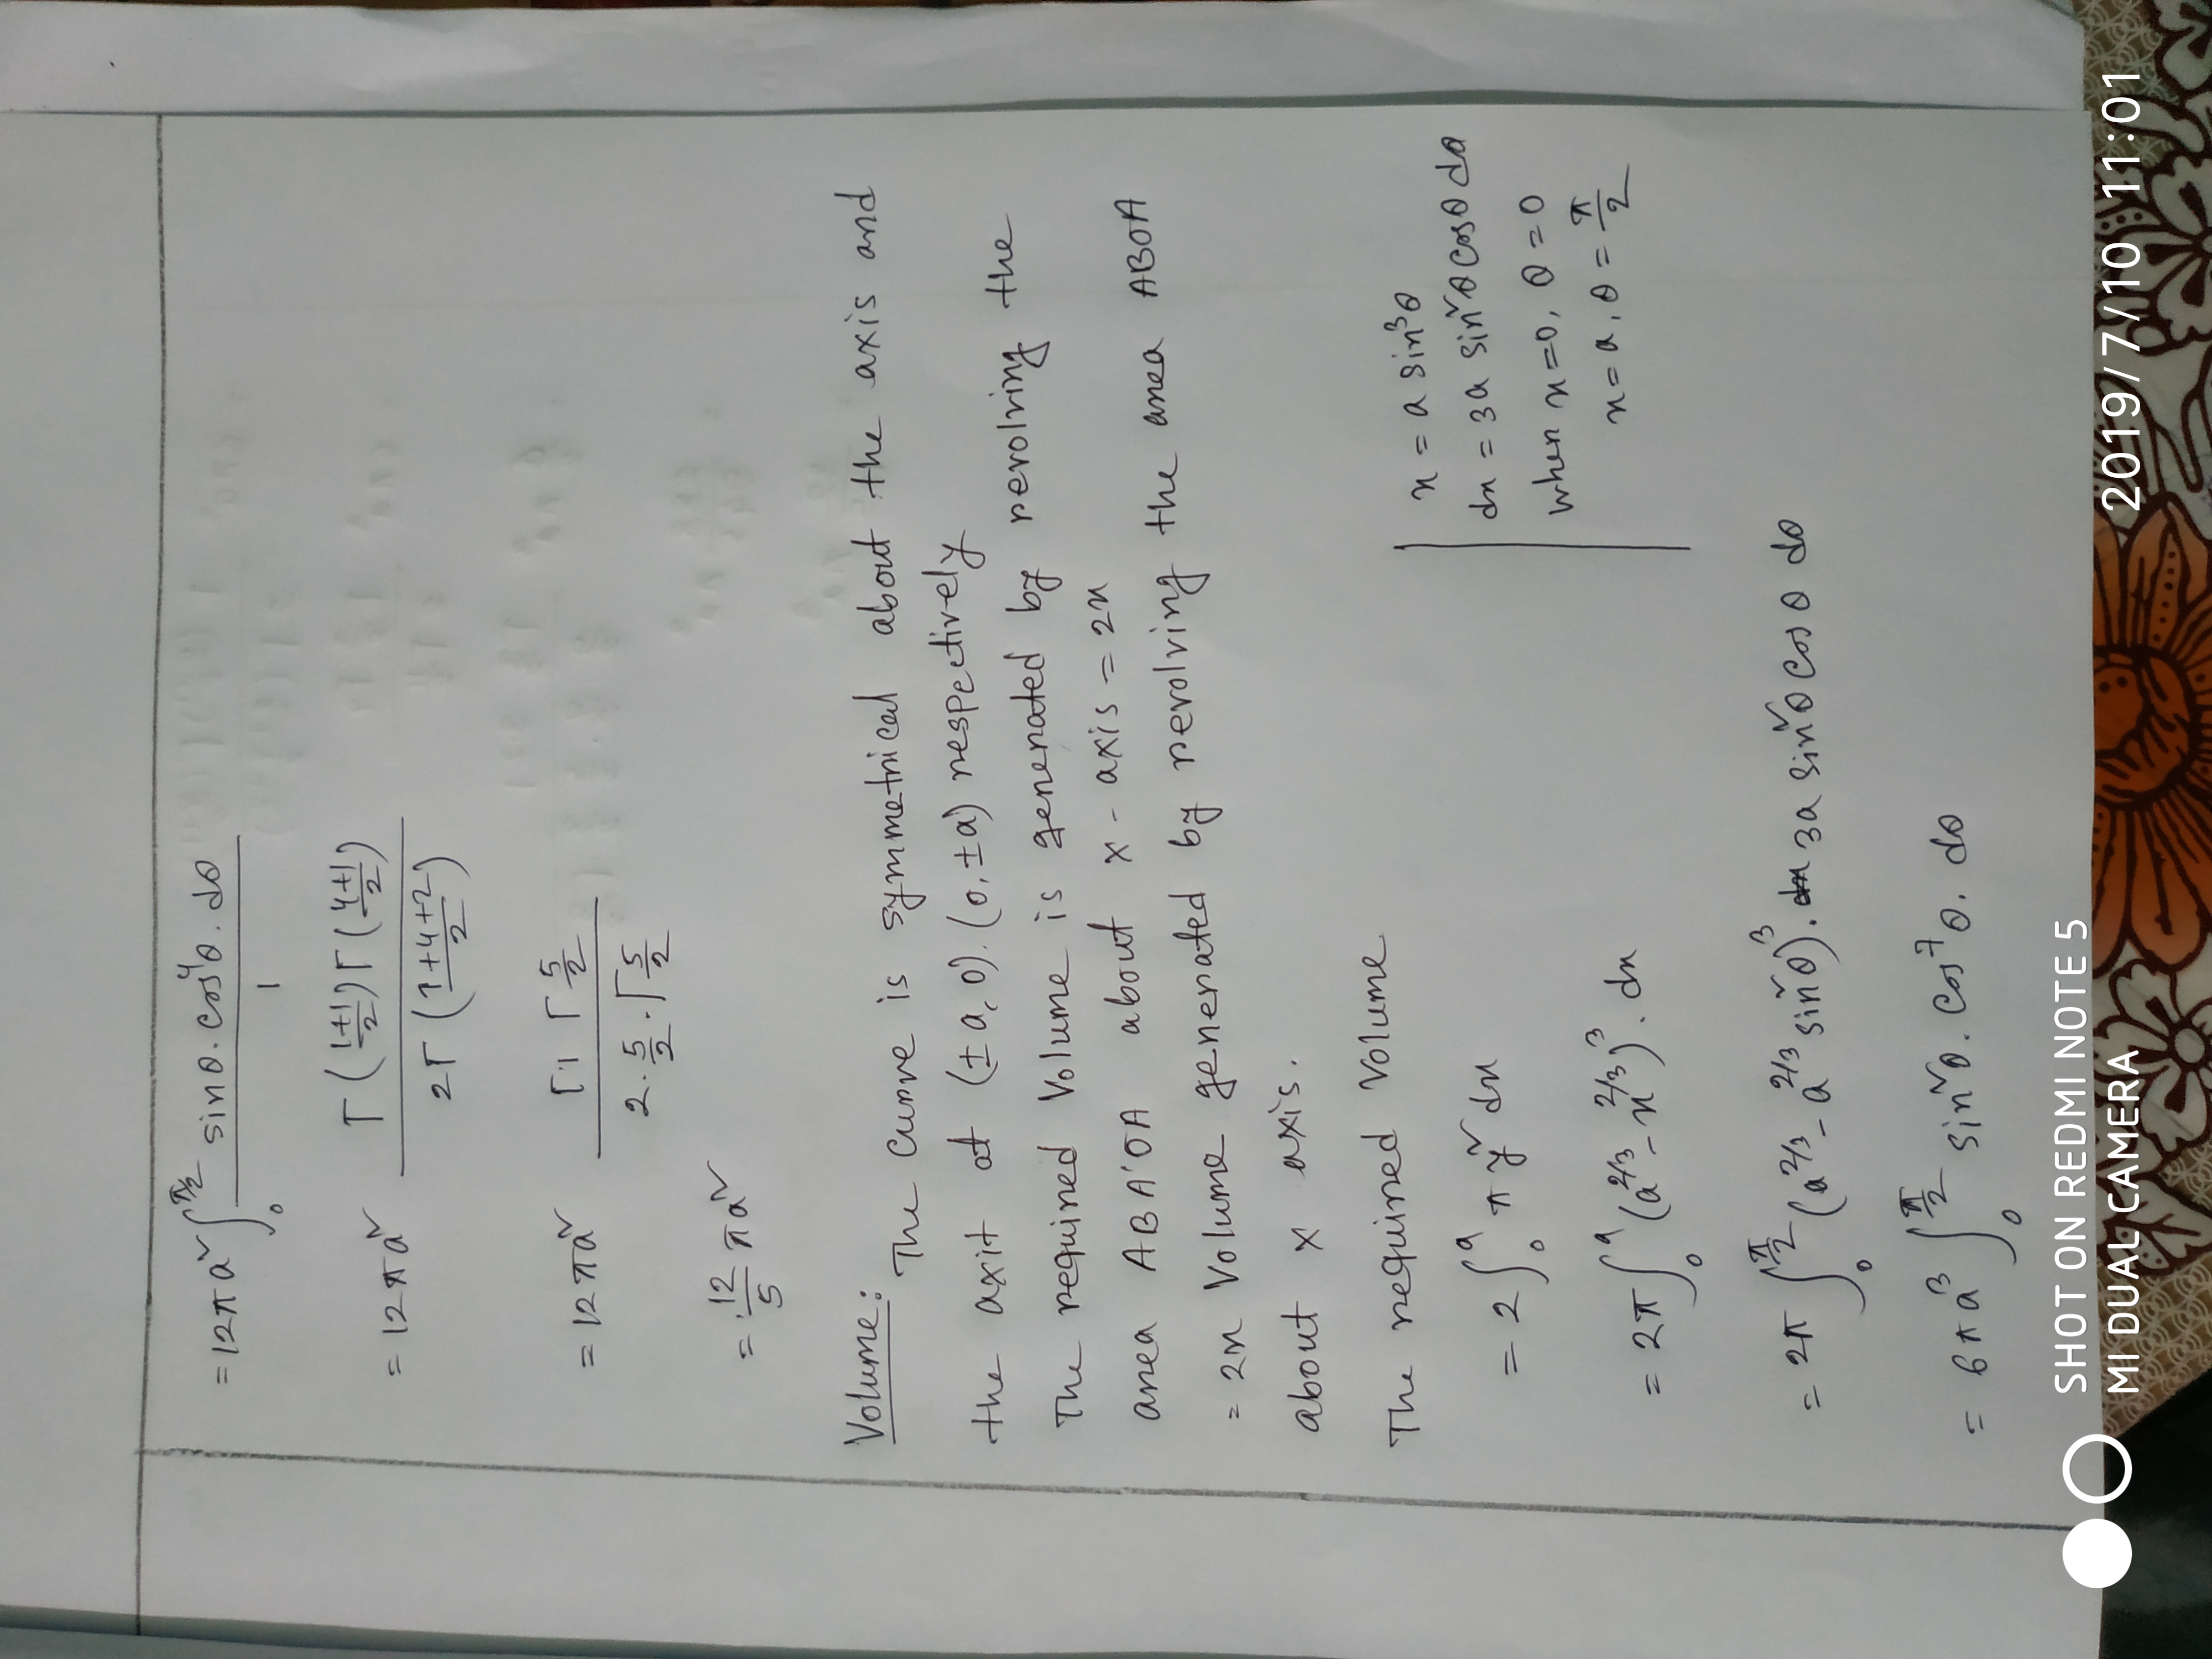 = 12πa² ∫₀^{π/2} sinθ. cos⁴θ. dθ / 1
= 12πa² Γ((1+1)/2) Γ((4+1)/2) / 2Γ((1+4+2)/2)
= 12πa² Γ1 Γ5/2 / 2. 5/2 . Γ5/2
= 12/5 πa²
Volume: The curve is symmetrical about the axis and
the axit at (± a, 0). (0, ±a) respectively
The required Volume is generated by revolving the
area ABA'OA about x - axis = 2x
= 2x Volume generated by revolving the area ABOA
about x axis.
The required Volume
= 2 ∫₀^a π y² dx
= 2π ∫₀^a (a^{2/3} - x^{2/3})³. dx
= 2π ∫₀^{π/2} (a^{2/3} - a^{2/3} sin²θ)³. 3a sin²θ cosθ dθ
= 6πa³ ∫₀^{π/2} sin²θ. cos⁷θ. dθ
x = a sin³θ
dx = 3a sin²θ cosθ dθ
when x=0, θ=0
x=a, θ = π/2
SHOT ON REDMI NOTE 5
MI DUAL CAMERA
2019/7/10 11:01